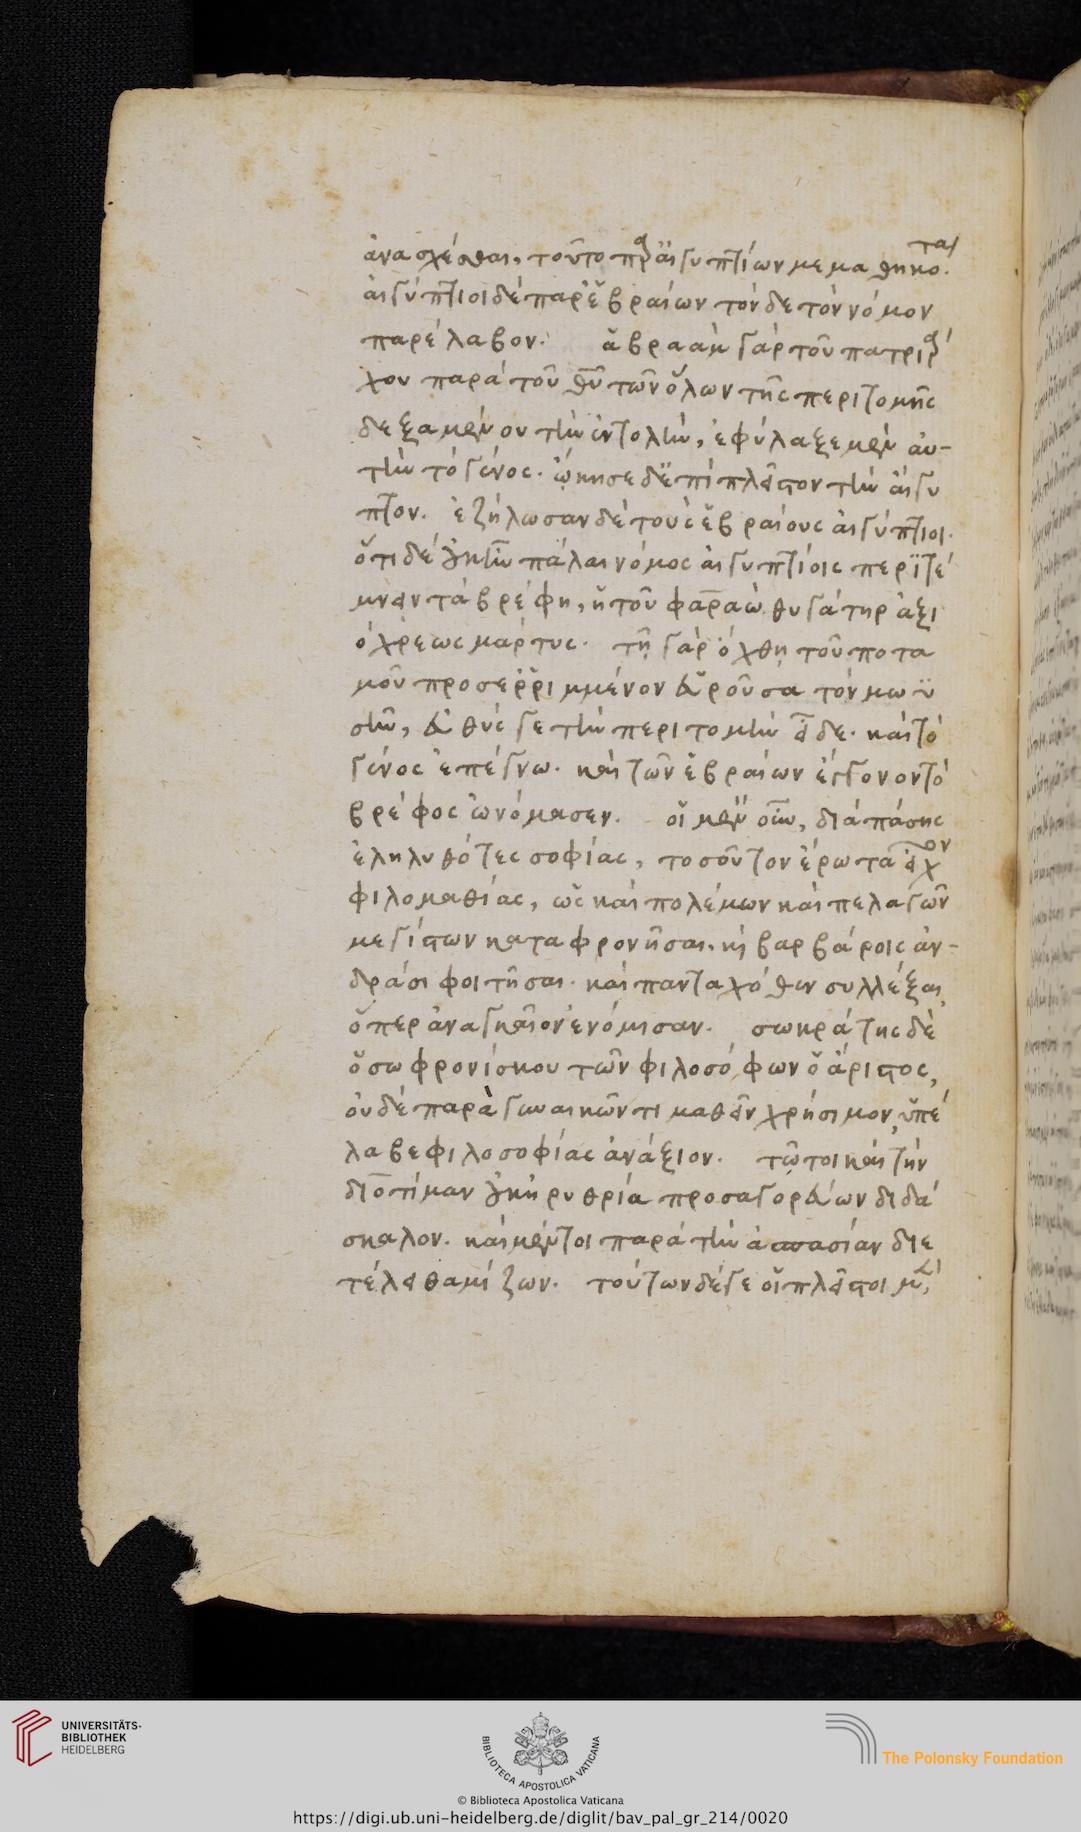 ἀνασχέσθαι, τοῦτο παρ' αἰγυπτίων μεμαθηκότα.
αἰγύπτιοι δὲ παρ' ἑβραίων τόνδε τὸν νόμον
παρέλαβον. ἁβραὰμ γὰρ τοῦ πατριάρ
χου παρὰ τοῦ θῦ τῶν ὅλων τῆς περιτομῆς
δεξαμένου τὴν ἐντολὴν, ἐφύλαξε μὲν αὐ-
τὴν τὸ γένος. ᾤκησε δ' ἐπιπλεῖστον τὴν αἴγυ
πτον. ἐζήλωσαν δὲ τοὺς ἑβραίους αἰγύπτιοι.
ὅτι δὲ ἐκεῖν πάλαι νόμος αἰγυπτίοις περιτέ
μνειν τὰ βρέφη, ἡ τοῦ φαραὼ θυγάτηρ ἀξι
όχρεως μάρτυς. τῇ γὰρ ὄχθῃ τοῦ ποτα
μοῦ προσερριμμένον εὑροῦσα τὸν μωϋ
σῆν, εὐθύς γε τὴν περιτομὴν εἶδε. καὶ τὸ
γένος ἐπέγνω. καὶ τῶν ἑβραίων ἔγγονον τὸ
βρέφος ὠνόμασεν. οἱ μὲν οὖν, διὰ πάσης
ἐληλυθότες σοφίας, τοσοῦτον ἔρωτα εἶχον
φιλομαθίας, ὡς καὶ πολέμων καὶ πελαγῶν
μεγίστων καταφρονῆσαι. κὶ βαρβάροις ἀν-
δράσι φοιτῆσαι. καὶ πανταχόθεν συλλέξαι,
ὅπερ ἀναγκαῖον ἐνόμισαν. σωκράτης δὲ
ὁ σωφρονίσκου τῶν φιλοσόφων ὁ ἄριστος,
οὐδὲ παρὰ γυναικῶν τι μαθεῖν χρήσιμον, ὑπέ
λαβε φιλοσοφίας ἀνάξιον. τῷ τοι καὶ τὴν
διοτίμαν ἐκ ἠρυθρία προσαγορεύων διδά
σκαλον. καὶ μέντοι παρὰ τὴν ἀσπασίαν διε
τέλει θαμίζων. τούτων δέ γε οἱ πλεῖστοι μὲν
UNIVERSITÄTS-
BIBLIOTHEK
HEIDELBERG
BIBLIOTECA APOSTOLICA VATICANA
The Polonsky Foundation
© Biblioteca Apostolica Vaticana
https://digi.ub.uni-heidelberg.de/diglit/bav_pal_gr_214/0020